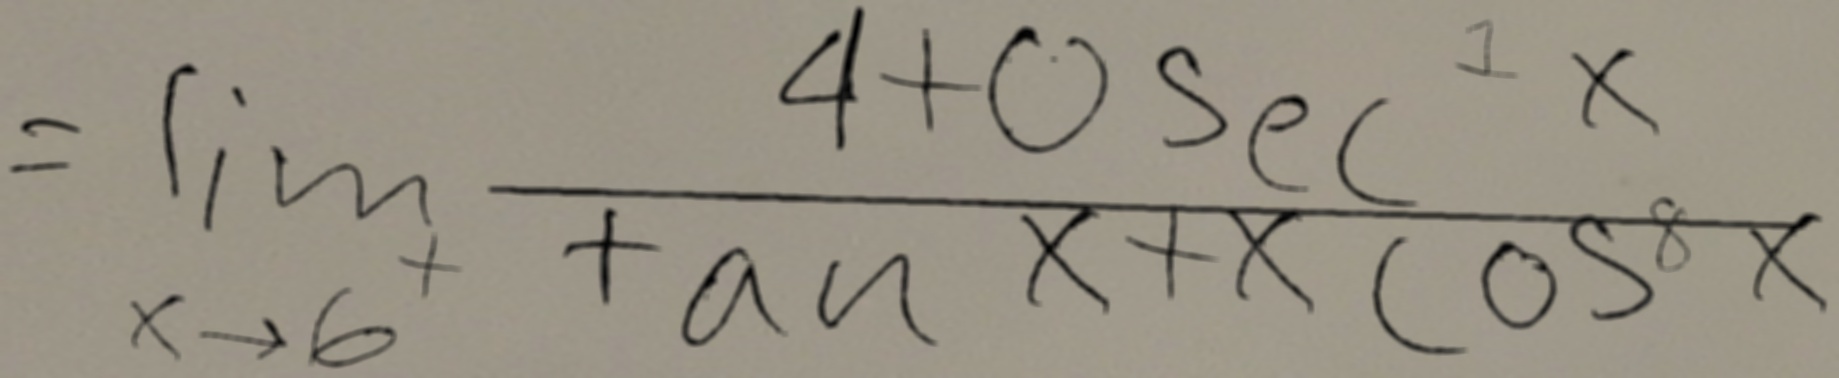 = lim_{x→6^+} \frac{4+0 sec^1 x}{tan x+x cos^8 x}